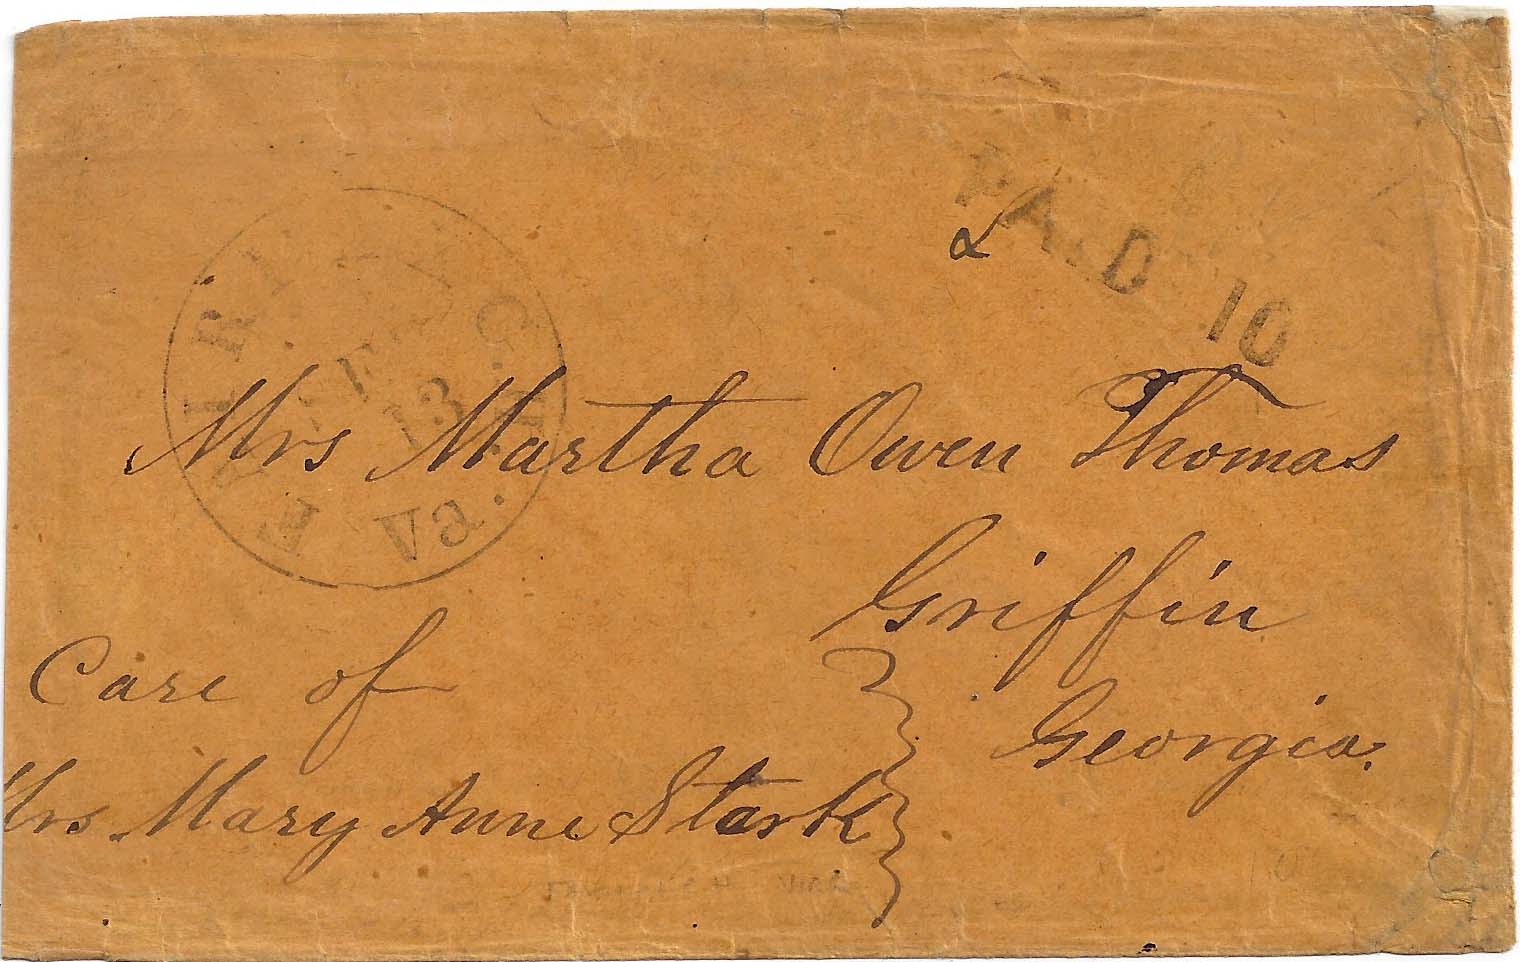 FAIRFAX C.H. Va.
13
PAID 10
Mrs Martha Owen Thomas
Griffin
Georgia.
Care of
Mrs Mary Anne Stark